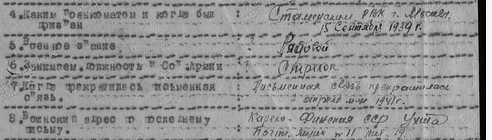 4. Каким военкоматом и когда был : Сталинским РВК г. Москвы,
призван 15 сентября 1939 г.
5. Военное звание : Рядовой
6. Занимаем. должность в Сов. Армии : Стрелок
7. Когда прекратилась письменная : Письменная связь прекратилась
связь. с апреля м-ца 1941 г.
8. Воинский адрес по последнему : Карело-Финская ССР Ухта
письму. Почт. ящик № 11